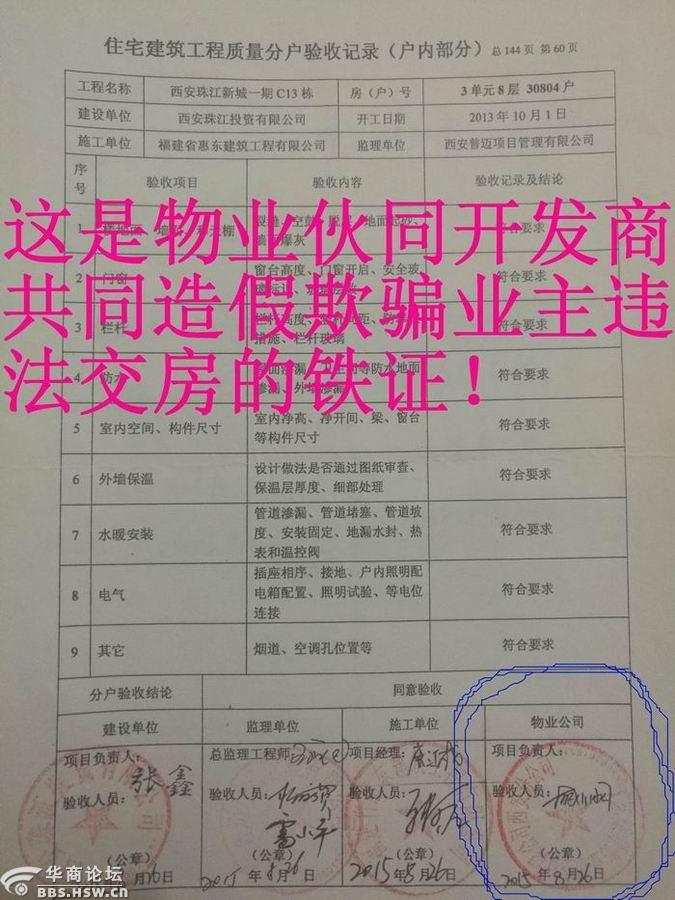 住宅建筑工程质量分户验收记录（户内部分） 总 144 页 第 60 页
工程名称 西安珠江新城一期 C13 栋 房（户）号 3 单元 8 层 30804 户
建设单位 西安珠江投资有限公司 开工日期 2013 年 10 月 1 日
施工单位 福建省惠东建筑工程有限公司 监理单位 西安普迈项目管理有限公司
序号 验收项目 验收内容 验收记录及结论
这是物业伙同开发商
共同造假欺骗业主违
法交房的铁证！
1
2 门窗 窗台高度、门窗开启、安全玻
3 栏杆
措施、栏杆玻璃
4 防水 符合要求
5 室内空间、构件尺寸 室内净高、净开间、梁、窗台
等构件尺寸 符合要求
6 外墙保温 设计做法是否通过图纸审查、
保温层厚度、细部处理 符合要求
7 水暖安装 管道渗漏、管道堵塞、管道坡
度、安装固定、地漏水封、热
表和温控阀 符合要求
8 电气 插座相序、接地、户内照明配
电箱配置、照明试验、等电位
连接 符合要求
9 其它 烟道、空调孔位置等 符合要求
分户验收结论 同意验收
建设单位 监理单位 施工单位 物业公司
项目负责人： 总监理工程师 项目经理： 项目负责人：
张鑫
验收人员： 验收人员： 验收人员： 验收人员：
（公章） （公章） （公章） （公章）
2015 年 8 月 26 日 2015 年 8 月 26 日 2015 年 8 月 26 日
华商论坛
BBS.HSW.CN